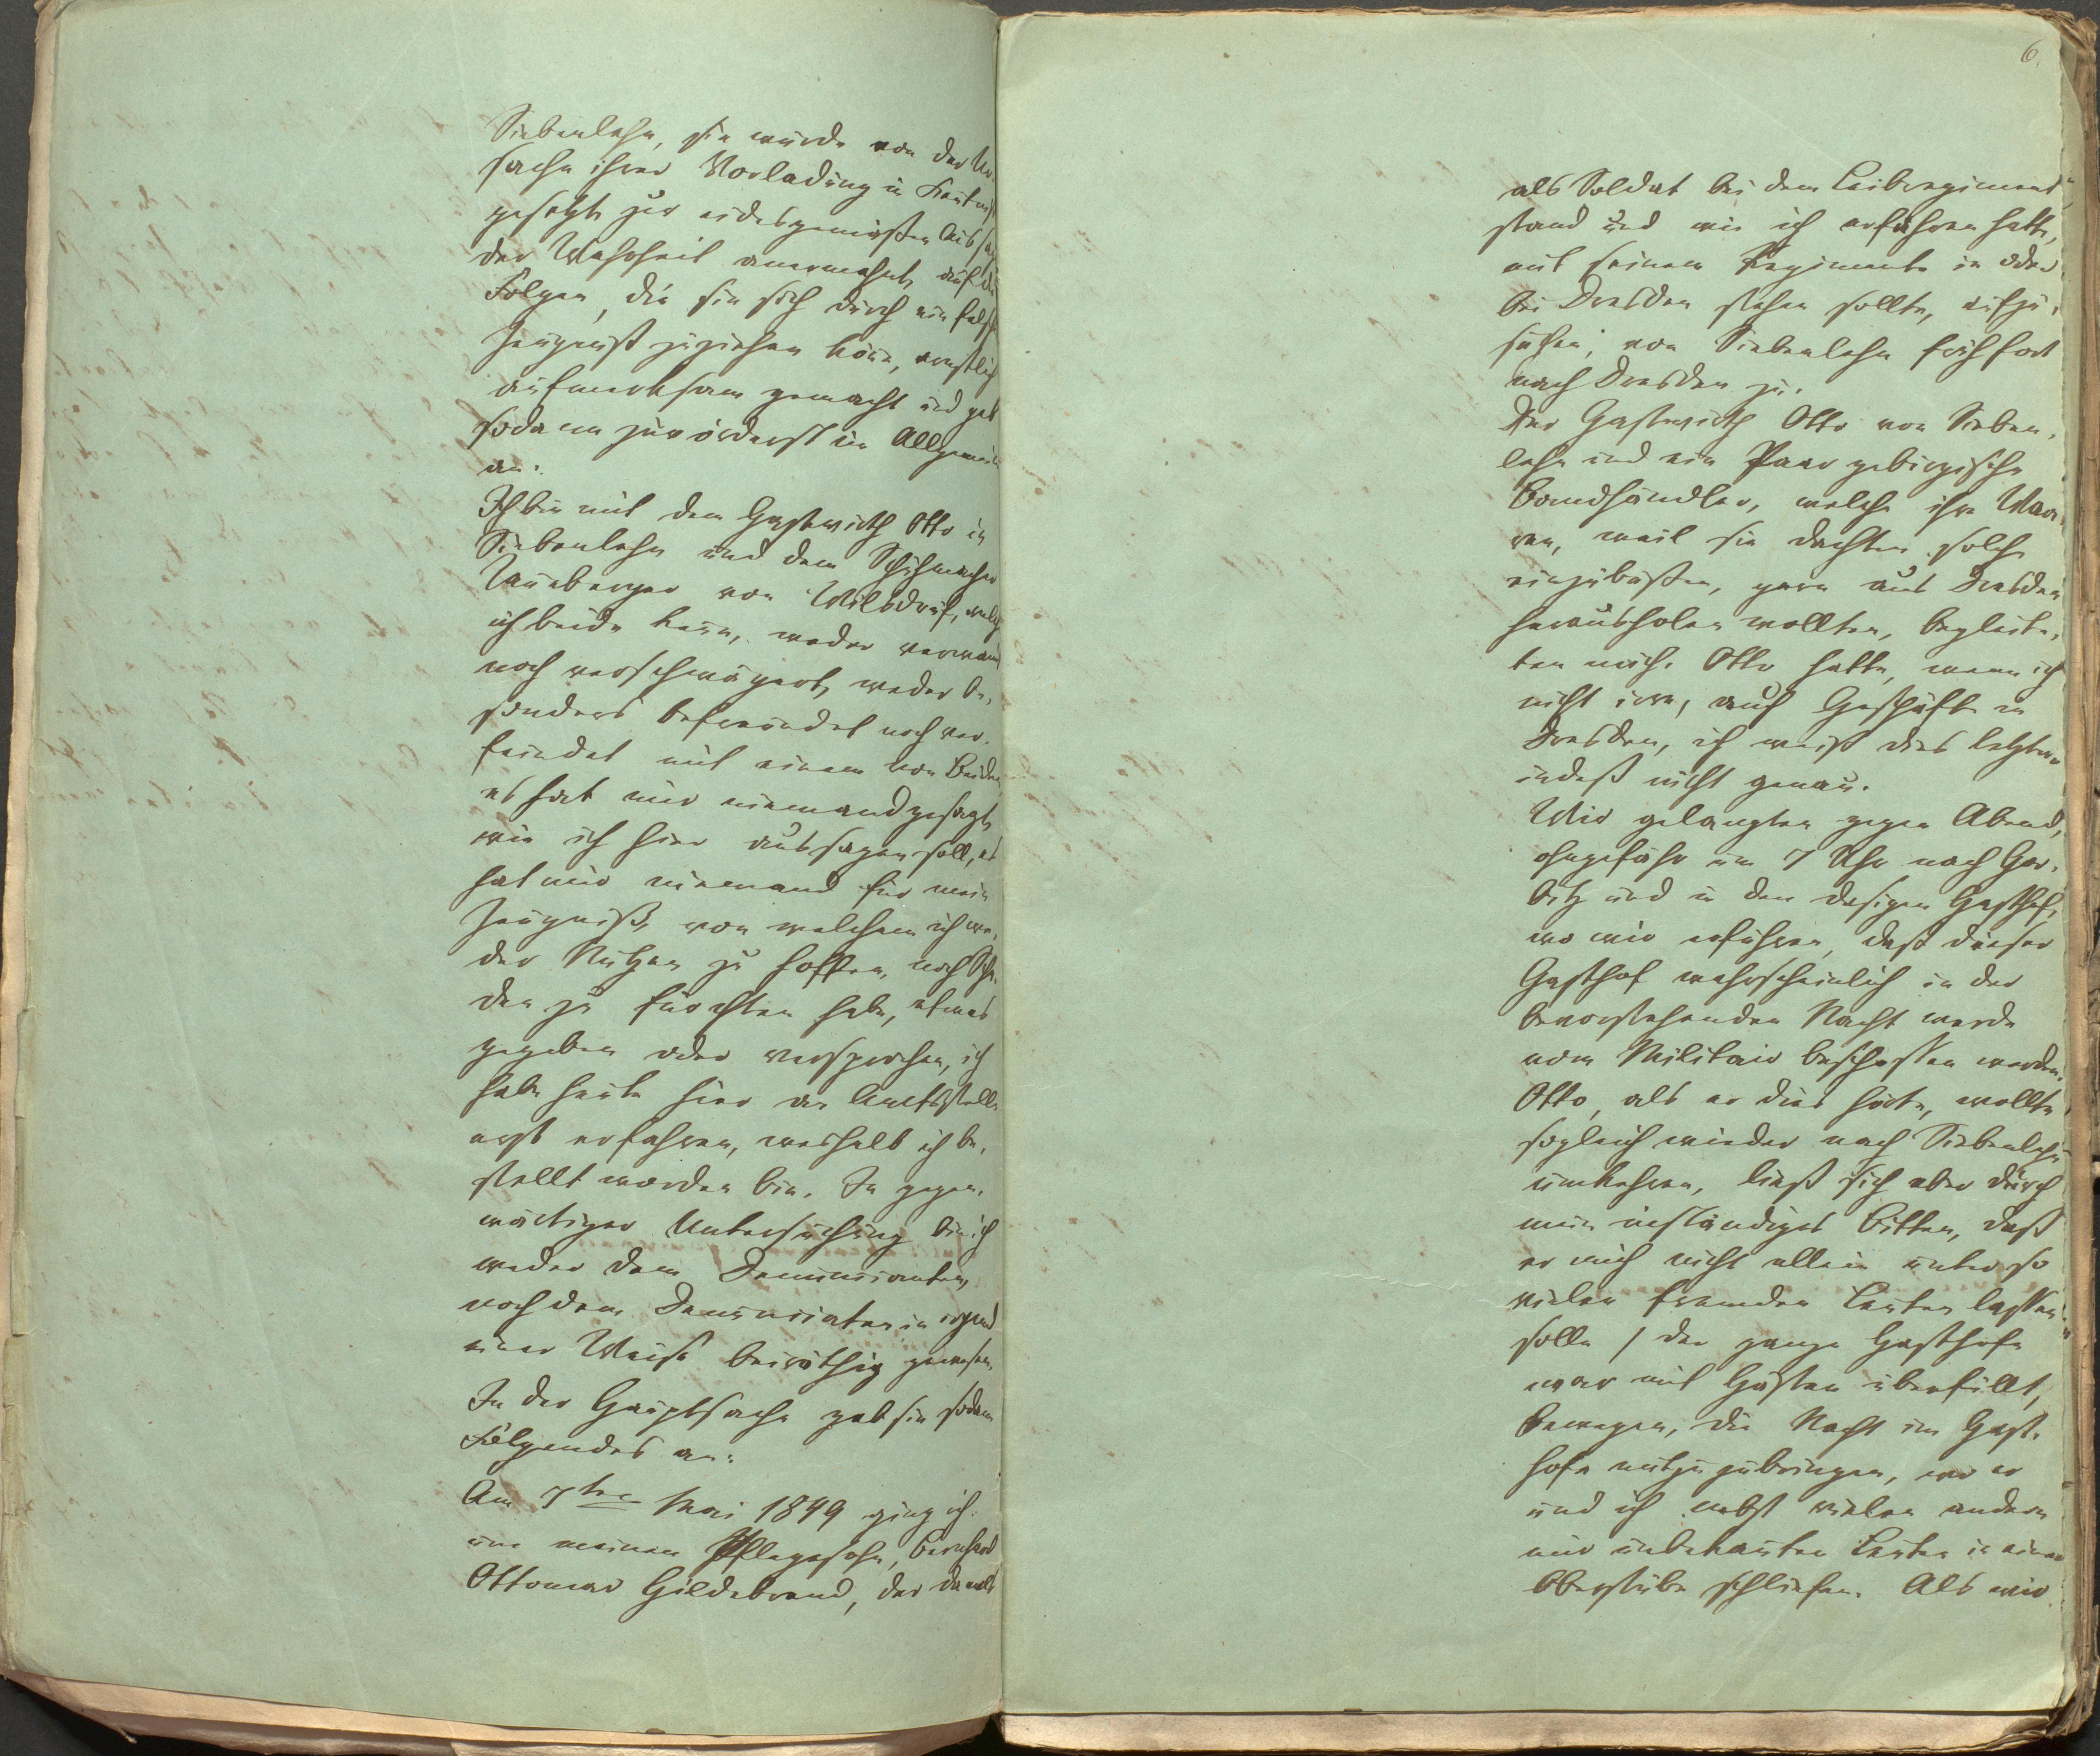 Siebenlehn, sie wurde von der Ur-
sache ihrer Vorladung in Kentniß
gesetzt zur eidesgemäßen Aussage
der Wahrheit anermahnt, auf die
Folgen, die sie sich durch ein falsch
Zeugniß zuziehen könne, ernstlich
aufmerksam gemacht und gab
sodann zuvörderst im Allgemein
an:
Ich bin mit dem Gastwirth Otto in
Siebenlehn und dem Schuhmacher
von Wilsdruf, welche
ich beide kenne, weder verwand
noch verschwägert, weder be-
sonders befreundet noch ver-
feindet mit einem von Beiden
es hat mir niemand gesagt,
wie ich hier aussagen soll, es
hat mir niemand für mein
Zeugniß, von welchem ich we-
der Nutzen zu hoffen, noch Scha-
den zu fürchten habe, etwas
gegeben oder versprochen, ich
habe heute hier an Amtsstelle
erst erfahren, weshalb ich be-
stellt worden bin. In gegen-
wärtiger Untersuchung bin ich
weder dem Denuncianten,
noch dem Denunciaten in irgend
einer Weise beiräthig gewesen.
In der Hauptsache gab sie sodann
Folgendes an:
Am 7ten Mai 1849 ging ich
um meinen Pflegesohn, Bernhard
Ottomar Hildebrand, der damals
6.
als Soldat bei dem Leibregiment
stand und wie ich erfahren hatte,
mit seinem Regimente in oder
bei Dresden stehen sollte, aufzu-
suchen, von Siebenlehn früh fort
nach Dresden zu.
Der Gastwirth Otto von Sieben-
lehn und ein Paar gebirgische
Bandhändler, welche ihre Waa-
ren, weil sie dachten solche
einzubüßen, gern aus Dresden
herausholen wollten, begleite-
ten mich. Otto hatte, wenn ich
nicht irre, auch Geschäfte in
Dresden, ich weiß dies letztere
indeß nicht genau.
Wir gelangten gegen Abend,
ohngefähr um 7 Uhr nach Gor-
bitz und in den dasigen Gasthof,
wo wir erfuhren, daß dieser
Gasthof wahrscheinlich in der
bevorstehenden Nacht werde
vom Militair beschossen werden.
Otto, als er dies hörte, wollte
sogleich wieder nach Siebenlehn
umkehren, ließ sich aber durch
mein inständiges Bitten, daß
er mich nicht allein unter so
vielen fremden Leuten lassen
solle / der ganze Gasthof
war mit Gästen überfüllt,
bewegen, die Nacht im Gast-
hofe mit zuzubringen, wo er
und ich nebst vielen andern
mir unbekannten Leuten in einer
Oberstube schliefen. Als wir